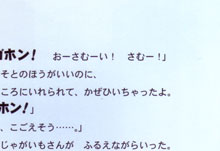 ゴホン！　おーさむーい！　さむー！」
そとのほうがいいのに、
ころにいれられて、かぜひいちゃったよ。
ホン！」
、こごえそう……。」
じゃがいもさんが　ふるえながらいった。